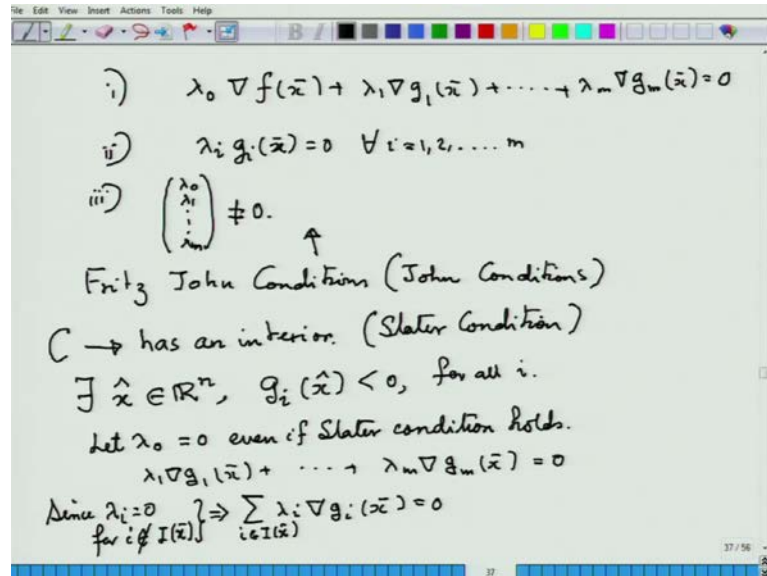 File Edit View Insert Actions Tools Help
i) λ₀ ∇f(x̄) + λ₁∇g₁(x̄) + ..... + λₘ∇gₘ(x̄) = 0
ii) λᵢ gᵢ(x̄) = 0 ∀ i = 1, 2, .... m
iii) (λ₀ λ₁ ⋮ λₘ) ≠ 0.
↑
Fritz John Conditions (John Conditions)
C → has an interior. (Slater Condition)
∃ x̂ ∈ ℝⁿ, gᵢ(x̂) < 0, for all i.
Let λ₀ = 0 even if Slater condition holds.
λ₁∇g₁(x̄) + ..... + λₘ∇gₘ(x̄) = 0
Since λᵢ = 0 for i ∉ I(x̄) } ⇒ ∑_{i∈I(x̄)} λᵢ ∇gᵢ(x̄) = 0
37/56
37